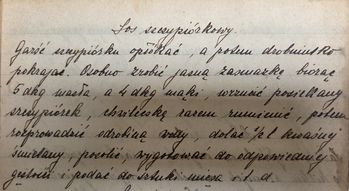 Sos szczypiórkowy.
Garść szczypiórku opłókać, a potem drobniutko
pokrajać. Osobno zrobić jasną zasmażkę biorąc
5 dkg masła, a 4 dkg mąki, wrzucić posiekany
szczypiórek, chwileczkę razem rumienić, potem
rozprowadzić odrobiną wody, dolać ½ l kwaśnej
śmietany, posolić, wygotować do odpowiedniej
gęstości i podać do sztuki mięsa i t. d.